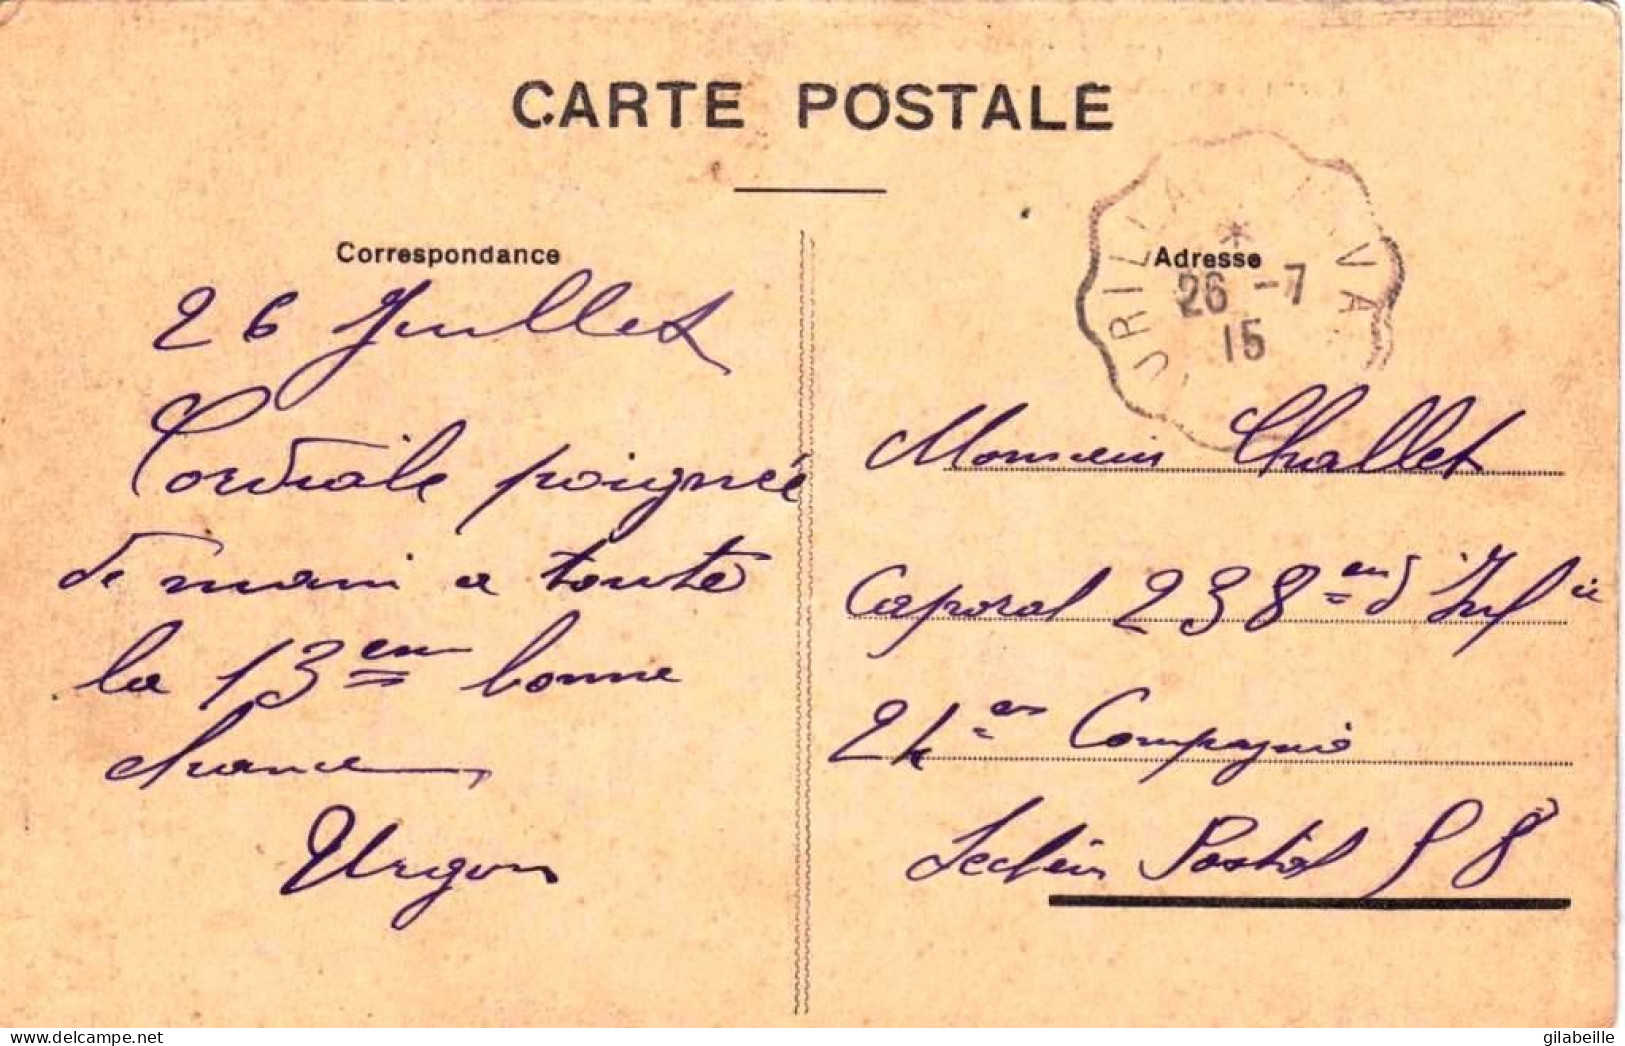 CARTE POSTALE
Correspondance
26 Juillet
Cordiale poignée
de main a toute
la 13em bonne
chance
Urgon
Adresse
26 -7
15
Monsieur Challet
Caporal 238em d'Infie
24em Compagnie
Secteur Postal 98
www.delcampe.net
gilabeille